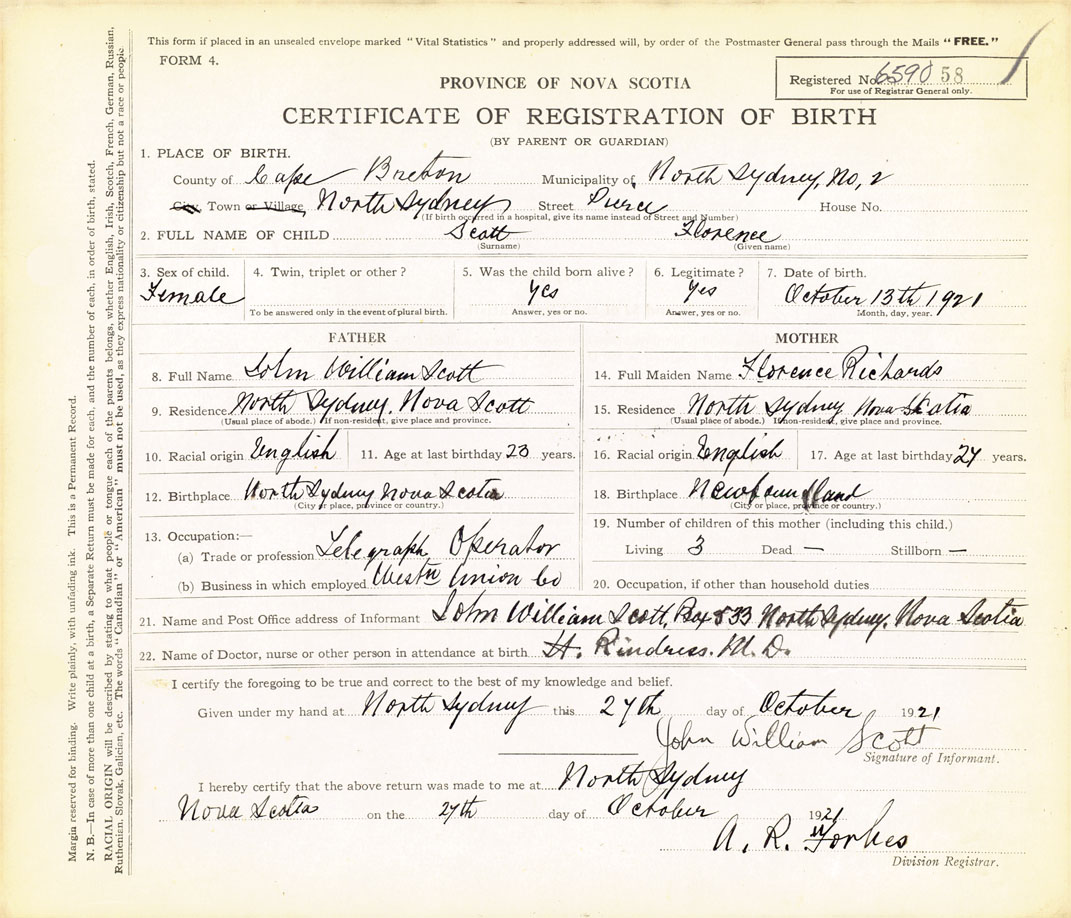 This form if placed in an unsealed envelope marked "Vital Statistics" and properly addressed will, by order of the Postmaster General pass through the Mails "FREE."
FORM 4.
Registered No. 6590 58
For use of Registrar General only.
PROVINCE OF NOVA SCOTIA
CERTIFICATE OF REGISTRATION OF BIRTH
(BY PARENT OR GUARDIAN)
1. PLACE OF BIRTH.
County of Cape Breton Municipality of North Sydney, No, 2
City, Town or Village North Sydney Street Pierce House No.
(If birth occurred in a hospital, give its name instead of Street and Number)
2. FULL NAME OF CHILD Scott Florence
(Surname) (Given name)
3. Sex of child. 4. Twin, triplet or other? 5. Was the child born alive? 6. Legitimate? 7. Date of birth.
Female Yes Yes October 13th 1921
To be answered only in the event of plural birth. Answer, yes or no. Answer, yes or no. Month, day, year.
FATHER
8. Full Name John William Scott
9. Residence North Sydney, Nova Scott
(Usual place of abode.) If non-resident, give place and province.
10. Racial origin English 11. Age at last birthday 23 years.
12. Birthplace North Sydney Nova Scotia
(City or place, province or country.)
13. Occupation:—
(a) Trade or profession Telegraph Operator
(b) Business in which employed Westn Union Co
MOTHER
14. Full Maiden Name Florence Richards
15. Residence North Sydney Nova Scotia
(Usual place of abode.) If non-resident, give place and province.
16. Racial origin English 17. Age at last birthday 24 years.
18. Birthplace Newfoundland
(City or place, province or country.)
19. Number of children of this mother (including this child.)
Living 3 Dead — Stillborn —
20. Occupation, if other than household duties
21. Name and Post Office address of Informant John William Scott, Box 533 North Sydney, Nova Scotia
22. Name of Doctor, nurse or other person in attendance at birth H. Rindress. M. D.
I certify the foregoing to be true and correct to the best of my knowledge and belief.
Given under my hand at North Sydney this 27th day of October 1921
John William Scott
Signature of Informant.
I hereby certify that the above return was made to me at North Sydney
Nova Scotia on the 27th day of October 1921
A. R. Forbes
Division Registrar.
Margin reserved for binding. Write plainly, with unfading ink. This is a Permanent Record.
N. B.—In case of more than one child at a birth, a Separate Return must be made for each, and the number of each, in order of birth, stated.
RACIAL ORIGIN will be described by stating to what people or tongue each of the parents belongs, whether English, Irish, Scotch, French, German, Russian,
Ruthenian, Slovak, Galician, etc. The words "Canadian" or "American" must not be used, as they express nationality or citizenship but not a race or people